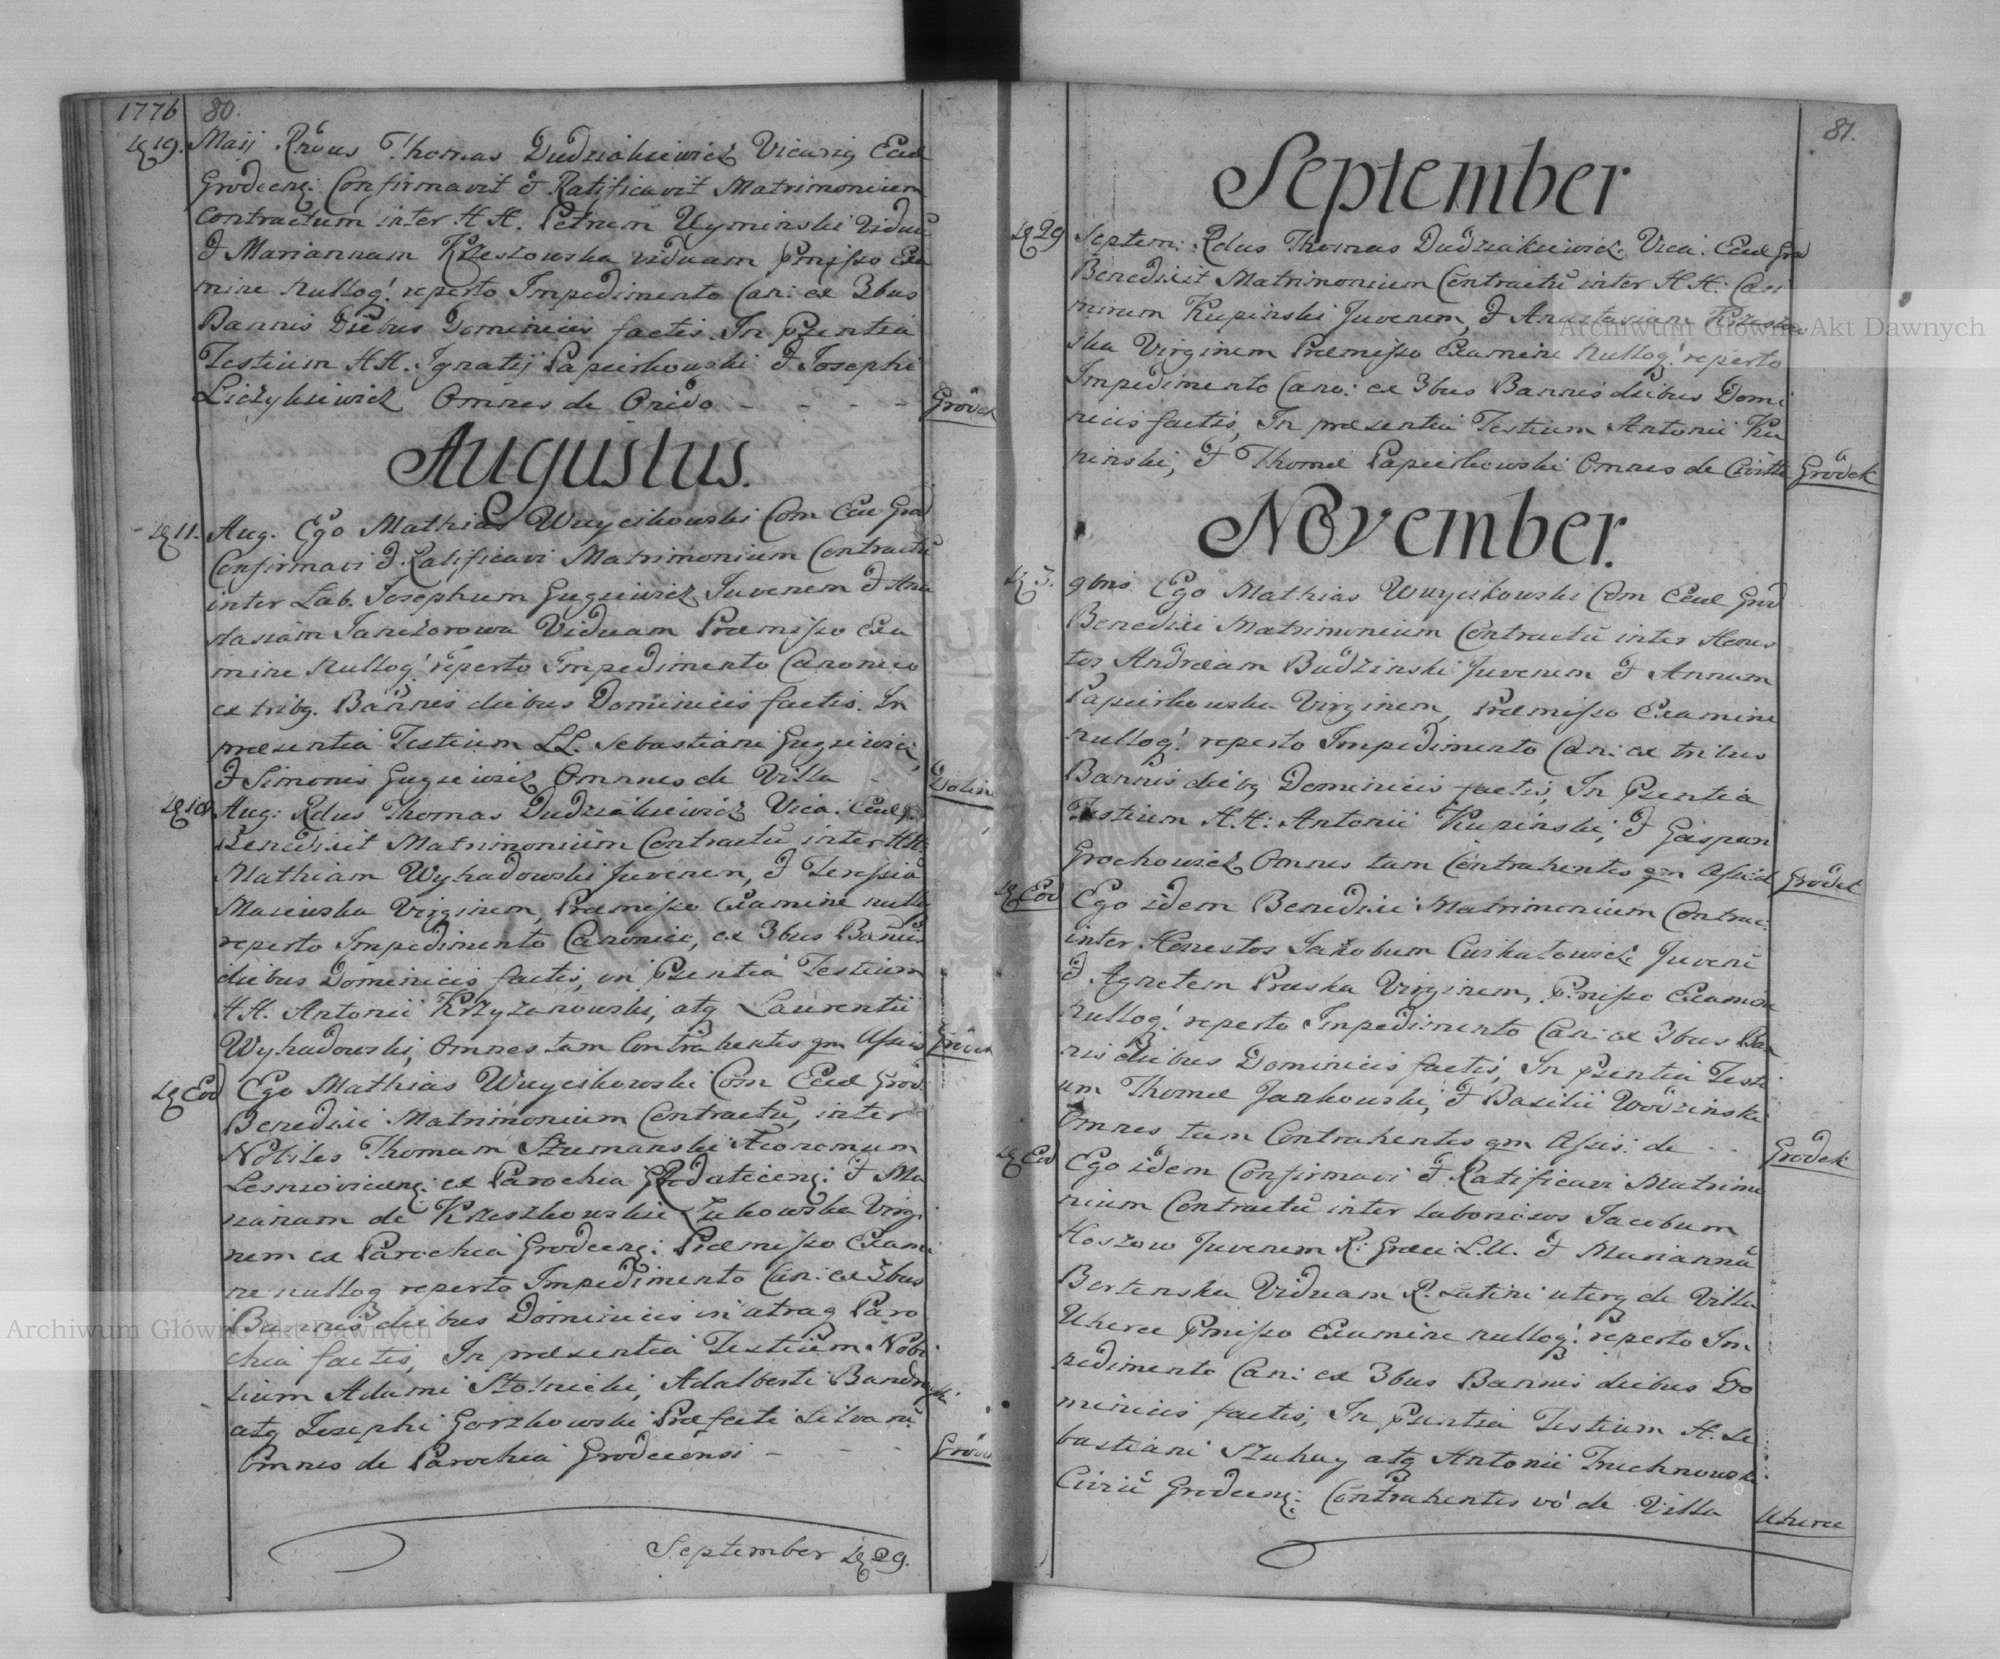 1776 80.
d 19. Maij Rñdus Thomas Dudziakiewicz Vicariq Eccl
Grodecenz: Confirmavit & Ratificavit Matrimonium
Contractum inter HH. Petrum Uyminski Viduũ
& Mariannam Krzeszowska viduam pmisso Exa
mine nulloq: reperto Impedimento Can: ex 3bus
Bannis Diebus Dominicis factis. In Pzentia
Testium HH. Ignatij Papierkowski & Josephi
Liczykiewicz Omnes de Orido - - - - Gródek
Augustus.
d 11. Aug. Ego Mathias Wuycikowski Com Ecc Grod
Confirmavi & Ratificavi Matrimonium Contractũ
inter Lab. Josephum Gugsiewicz Juvenem & Ana
stasiam Janczorowa Viduam Præmisso Exa
mine nulloq: reperto Impedimento Canonico
ex tribq. Bannis diebus Dominicis factis. In
præsentia Testium LL. Sebastiani Gugsiewicz,
& Simonis Gugsiewicz Omnes de Villa -
d 18 Aug: Rdus Thomas Dudziakiewicz Vica: Eccl Gr
Benedixit Matrimonium Contractũ inter HH:
Mathiam Wyhadowski Juvenem, & Teressiã
Masiewska Virginem, Præmisso Examine nulloq
reperto Impedimento Canonico, ex 3bus Bannis
diebus Dominicis factis, in Pzentia Testium
HH. Antonii Krzyzanowski, atq Laurentii
Wyhadowski, Omnes tam Contrahentes qm Assis Gródek
d Eod Ego Mathias Wuycikowski Com Eccl Grod:
Benedixi Matrimonium Contractũ, inter
Nobiles Thomam Szumanski Æconomum
Lesniovicenz: ex Parochia Rodaticenz: & Ma
rianam de Krzeszkowskie Zukowska Virgi
nem ex Parochia Grodecenz: Præmisso Exami
ne nulloq reperto Impedimento Can: ex 3bus
Bannis diebus Dominicis in utraq Paro
chia factis, In præsentia Testium Nobi
lium Adami Stolnicki, Adalberti Bandr
atq Josephi Gorzkowski Præfecti Silvarũ
Omnes de Parochia Grodecensi - - - Gródek
September d 29.
81.
September
d 29 Septem: Rdus Thomas Dudziakiewicz Vica: Eccl Gro
Benedixit Matrimonium Contractũ inter HH: Casi
mirum Kupinski Juvenem, & Anastasiam
ska Virginem Præmisso Examine nulloq: reperto
Impedimento Cano: ex 3bus Bannis diebus Domi
nicis factis, In præsentia Testium Antonii Ku
pinski, & Thomæ Papierkowski Omnes de Civitte Gródek
November.
d 3. 9bris Ego Mathias Wuycikowski Com Eccl Grod
Benedixi Matrimonium Contractũ inter Hones
tos Andræam Budzinski Juvenem & Annam
Papierkowska Virginem, Præmisso Examine
nulloq: reperto Impedimento Can: ex tribus
Bannis diebq Dominicis factis, In Pzentia
Testium H.H: Antonii Kupinski, & Gaspari
Grochowicz Omnes tam Contrahentes qm Assist Gródek
d Eod Ego idem Benedixi Matrimonium Contrac:
inter Honestos Jakobum Cuskatowicz Juvenẽ
& Agnetem Præska Virginem, Pmisso Examine
nulloq: reperto Impedimento Can: ex 3bus Ban
nis diebus Dominicis factis, In pzentia Testi
um Thomæ Jankowski, & Basilii Wodzinski
Omnes tam Contrahentes qm Assis: de - - Grodek
d Eod Ego idem Confirmavi & Ratificavi Matrimo
nium Contractũ inter Laboriosos Jacobum
Koszow Juvenem R: Græci L.U. & Mariannã
Bortenska Viduam R. Latini uterq de Villa
Uherce Pmisso Examine nulloq: reperto Im
pedimento Can: ex 3bus Bannis diebus Do
minicis factis, In Pzentia Testium H. Se
bastiani Szuhay atq Antonii Truchnowski
Civiũ Grodecenz: Contrahentes vó de Villa Uherce
Archiwum Główne Akt Dawnych
Archiwum Główne Akt Dawnych